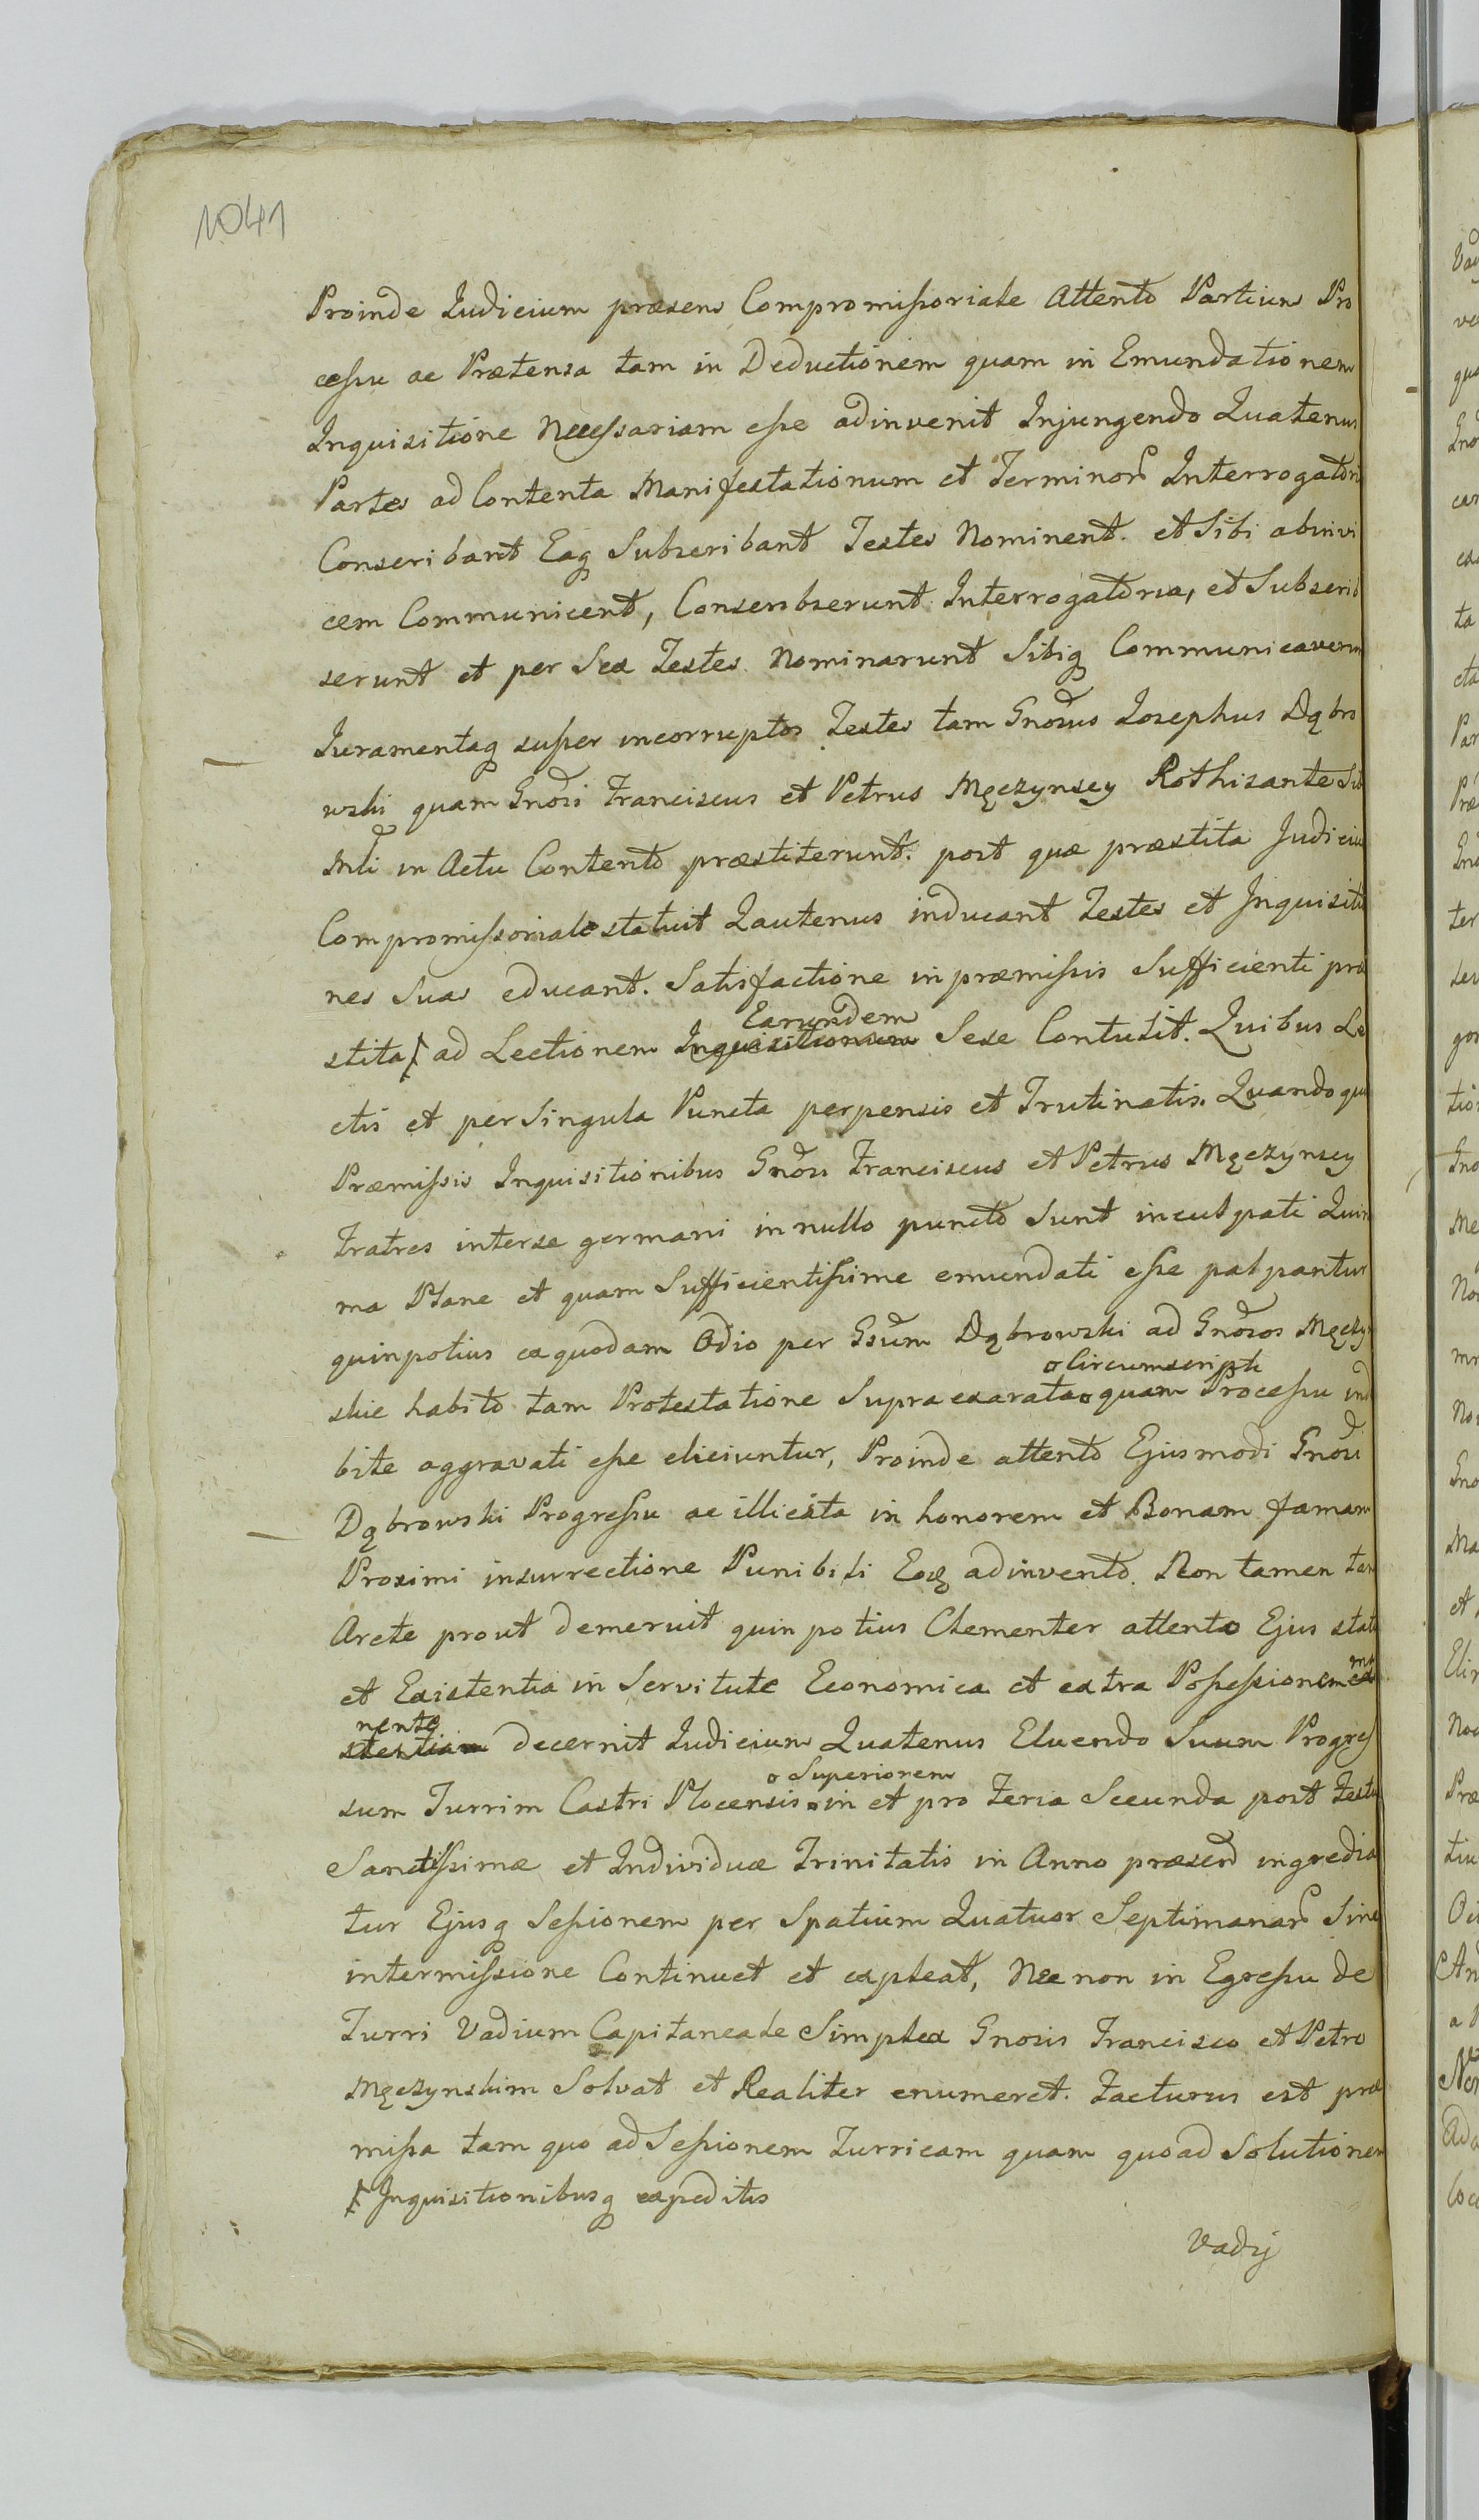 1041
Proinde Judicium præsens Compromissoriale Attento Partium Pro
cessu ac Prætensa tam in Deductionem quam in Emundationem
Inquisitione Necessariam esse adinvenit Injungendo Quatenus
Partes ad Contenta Manifestationum et Terminor Interrogatori
Conscribant Eaq Subscribant Testes Nominent. et Sibi abinvi
cem Communicent, Conscribserunt Interrogatoria, et Subscrib
serunt et per Sex Testes Nominarunt Sibiq Communicaverun
Juramentaq super incorruptos Testes tam Gnosus Josephus Dąbro
wski quam Gnosi Franciscus et Petrus Męczynscy Rothisante
Mli in Actu Contento præstiterunt. post quæ præstita Judiciu
Compromissoriale statuit Qautenus inducant Testes et Inquisitio
nes Suas educant. Satisfactione in præmissis Sufficienti præ
Earundem
stita ad Lectionem Inquisitionum Sese Contulit. Quibus Le
ctis et per Singula Puncta perpensis et Trutinatis. Quandoqui
Præmissis Inquisitionibus Gnosi Franciscus et Petrus Męczynscy
Fratres interse germani in nullo puncto Sunt inculpati Quin
ma Plane et quam Sufficientissime emundati esse palpantur
quinpotius ex quodam Odio per Gsum Dąbrowski ad Gnosos Męczy
o Circumscripti
skie habito tam Protestatione Supra exarata o quam Processu ind
bite aggravati esse eliciuntur, Proinde attento Ejusmodi Gnosi
Dąbrowski Progressu ac illicita in honorem et Bonam famam
Proximi insurrectione Punibili Eoq adinvento. Non tamen tam
Arcte prout demeruit quin potius Clementer attento Ejus statu
et Existentia in Servitute Economica et extra Possessionem
nente
decernit Judicium Quatenus Eluendo Suum Progres
o Superiorem
sum Turrim Castri Plocensis o in et pro Feria Secunda post Festu
Sanctissimæ et Individuæ Trinitatis in Anno præsen ingredia
tur Ejusq Sessionem per Spatium Quatuor Septimanar Sine
intermissione Continuet et expleat, Nec non in Egressu de
Turri Vadium Capitaneale Simplex Gnosis Francisco et Petro
Męczynskim Solvat et Realiter enumeret. Facturus est præ
missa tam quo ad Sessionem Turricam quam quoad Solutionem
Inquisitionibusq expeditis
Vadij